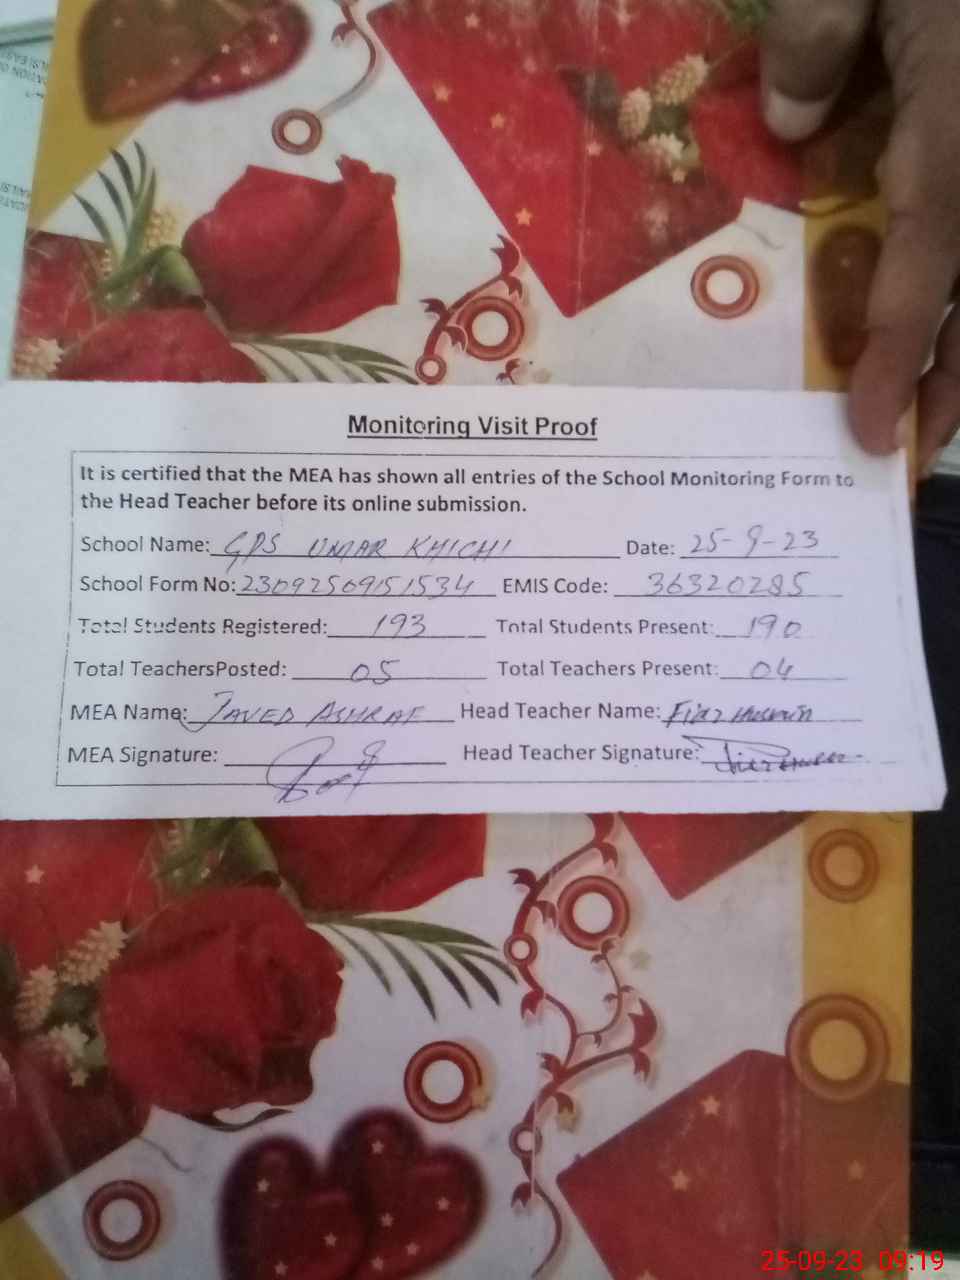 Monitoring Visit Proof
It is certified that the MEA has shown all entries of the School Monitoring Form to
the Head Teacher before its online submission.
School Name: GPS UMAR KHICHI Date: 25-9-23
School Form No: 23092509151534 EMIS Code: 36320285
Total Students Registered: 193 Total Students Present: 190
Total TeachersPosted: 05 Total Teachers Present: 04
MEA Name: JAVED ASHRAF Head Teacher Name: Fiaz Hussain
MEA Signature: Head Teacher Signature:
25-09-23 09:19